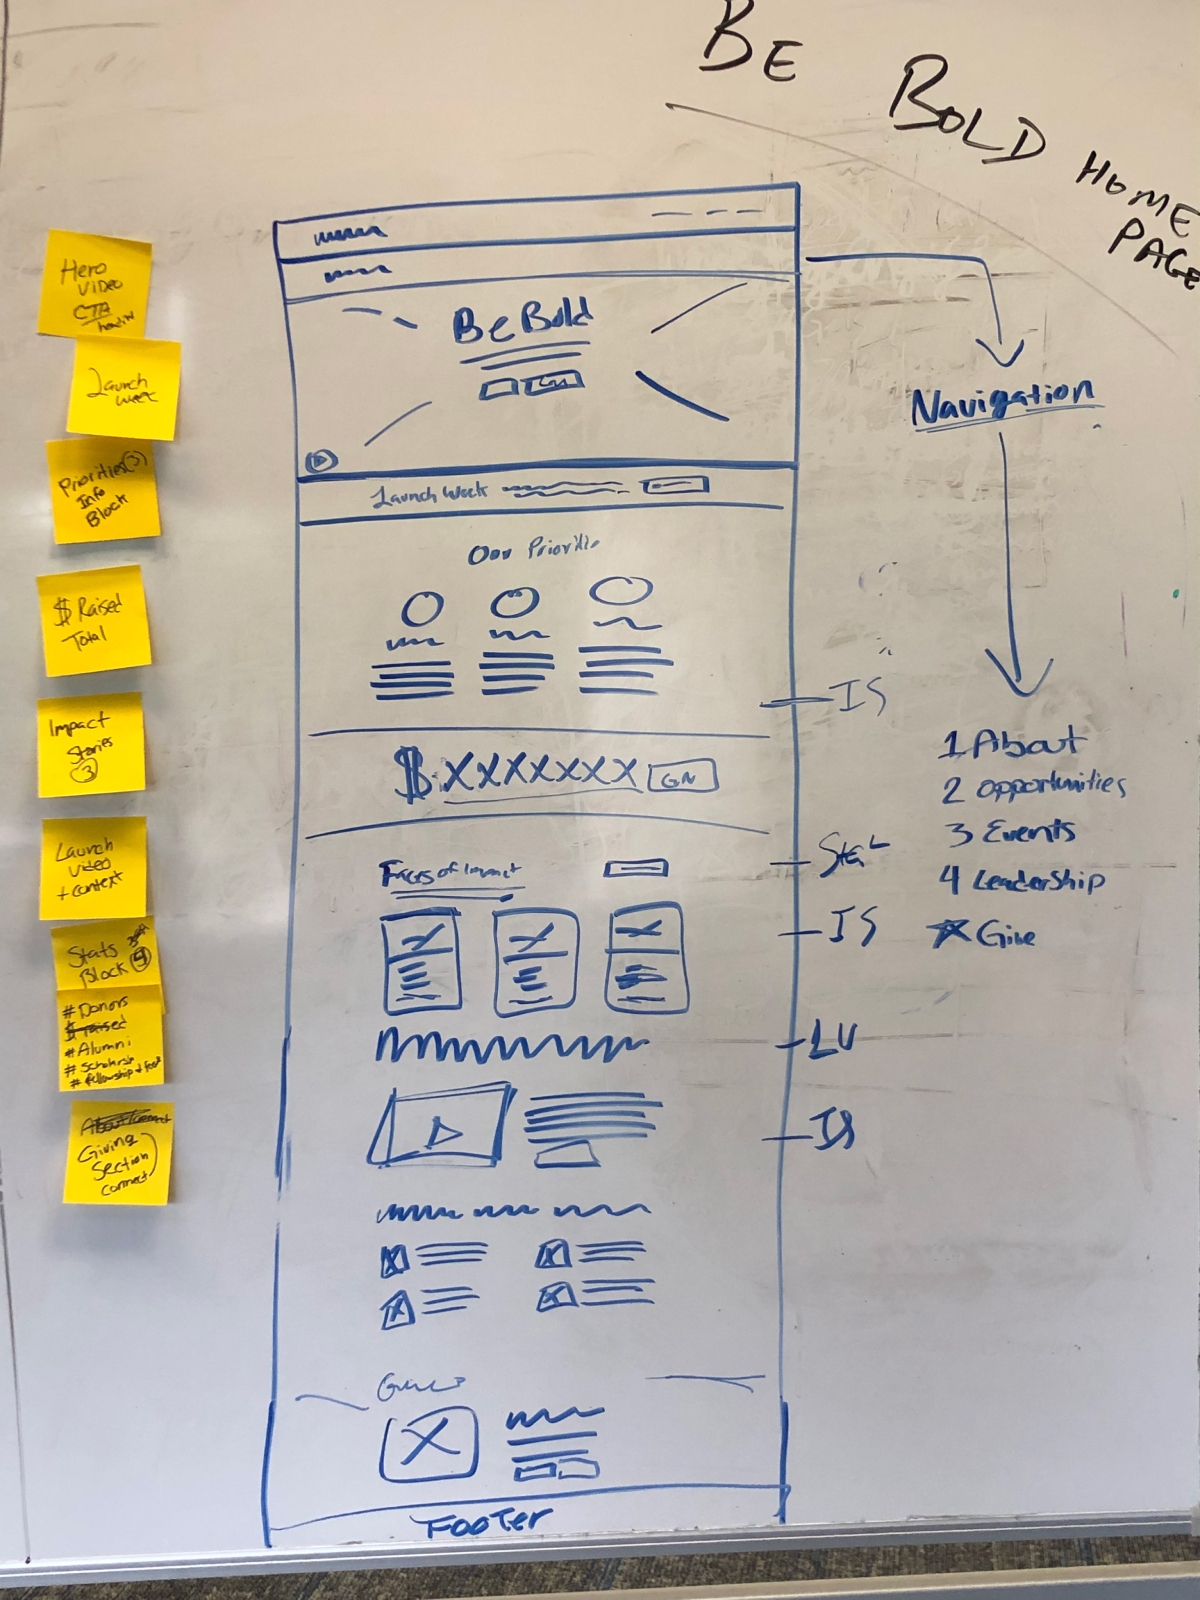 BE BOLD HOME
PAGE
Hero
Video
CTA
Launch
Week
Priorities (3)
Info
Block
$ Raised
Total
Impact
Stories
3
Launch
video
+ context
Stats
Block
# Donors
$ raised
# Alumni
# Scholarship
Giving
Section
connect
Be Bold
Launch Week
Our Priorities
$ XXXXXXX
Faces of Impact
Footer
IS
Stat
IS
LV
IS
Navigation
1 About
2 Opportunities
3 Events
4 Leadership
Give